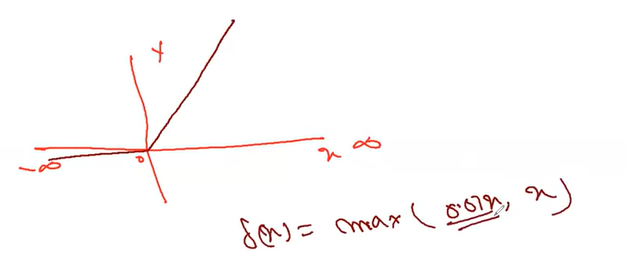 Y
-∞ 0 x ∞
f(x) = max(0.01x, x)